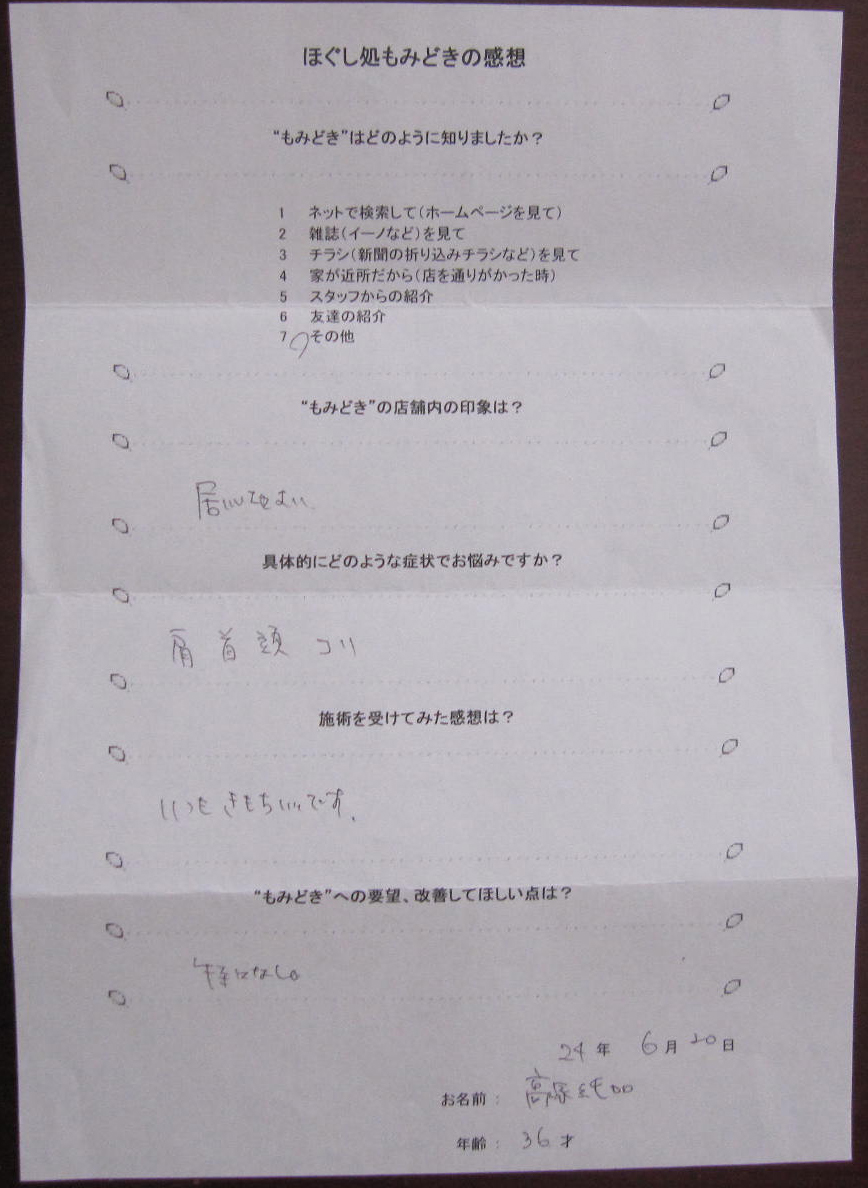 ほぐし処もみどきの感想
“もみどき”はどのように知りましたか？
1 ネットで検索して（ホームページを見て）
2 雑誌（イーノなど）を見て
3 チラシ（新聞の折り込みチラシなど）を見て
4 家が近所だから（店を通りがかった時）
5 スタッフからの紹介
6 友達の紹介
7 その他
“もみどき”の店舗内の印象は？
具体的にどのような症状でお悩みですか？
肩 首 頭 コリ
施術を受けてみた感想は？
いつもきもちいいです。
“もみどき”への要望、改善してほしい点は？
特になし。
24年 6月20日
お名前： 高塚純加
年齢： 36才